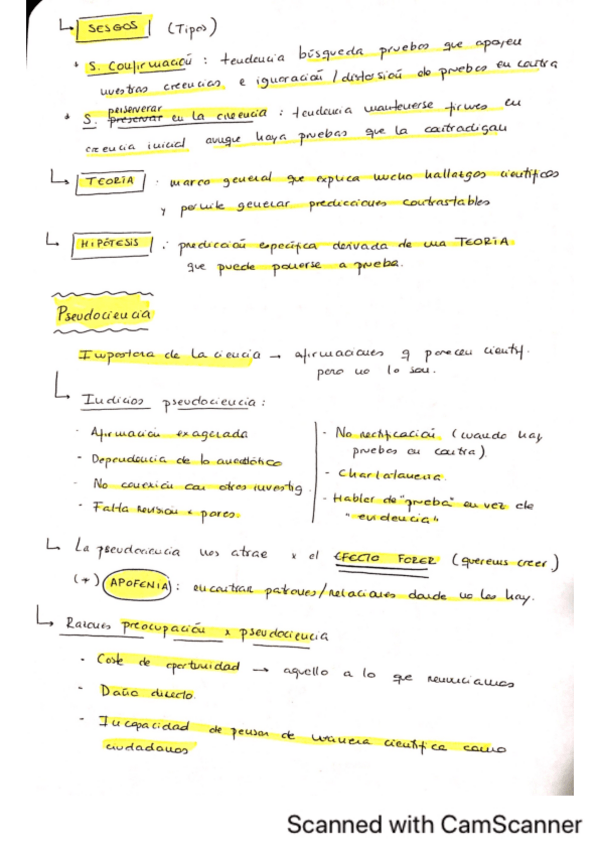 ↳ SESGOS (Tipos)
• S. Confirmación : tendencia búsqueda pruebas que apoyen
nuestras creencias e ignoración / distorsión de pruebas en contra
perserverar
• S. preservar en la creencia : tendencia mantenerse firmes en
creencia inicial aunque haya pruebas que la contradigan
↳ TEORÍA : marco general que explica mucho hallazgos científicos
y permite generar predicciones contrastables
↳ HIPÓTESIS : predicción específica derivada de una TEORÍA
que puede ponerse a prueba.
Pseudociencia
Impostora de la ciencia → afirmaciones q parecen cientif.
pero no lo son.
↳ Indicios pseudociencia :
- Afirmación exagerada
- Dependencia de lo anecdótico
- No conexión con otros investig.
- Falta revisión x pares.
- No rectificación (cuando hay
pruebas en contra).
- Charlatanería.
- Hablar de "prueba" en vez de
"evidencia"
↳ La pseudociencia nos atrae x el EFECTO FORER (queremos creer)
(+) APOFENIA : encontrar patrones/relaciones donde no los hay.
↳ Razones preocupación x pseudociencia
- Coste de oportunidad → aquello a lo que renunciamos
- Daño directo
- Incapacidad de pensar de manera científica como
ciudadanos
Scanned with CamScanner